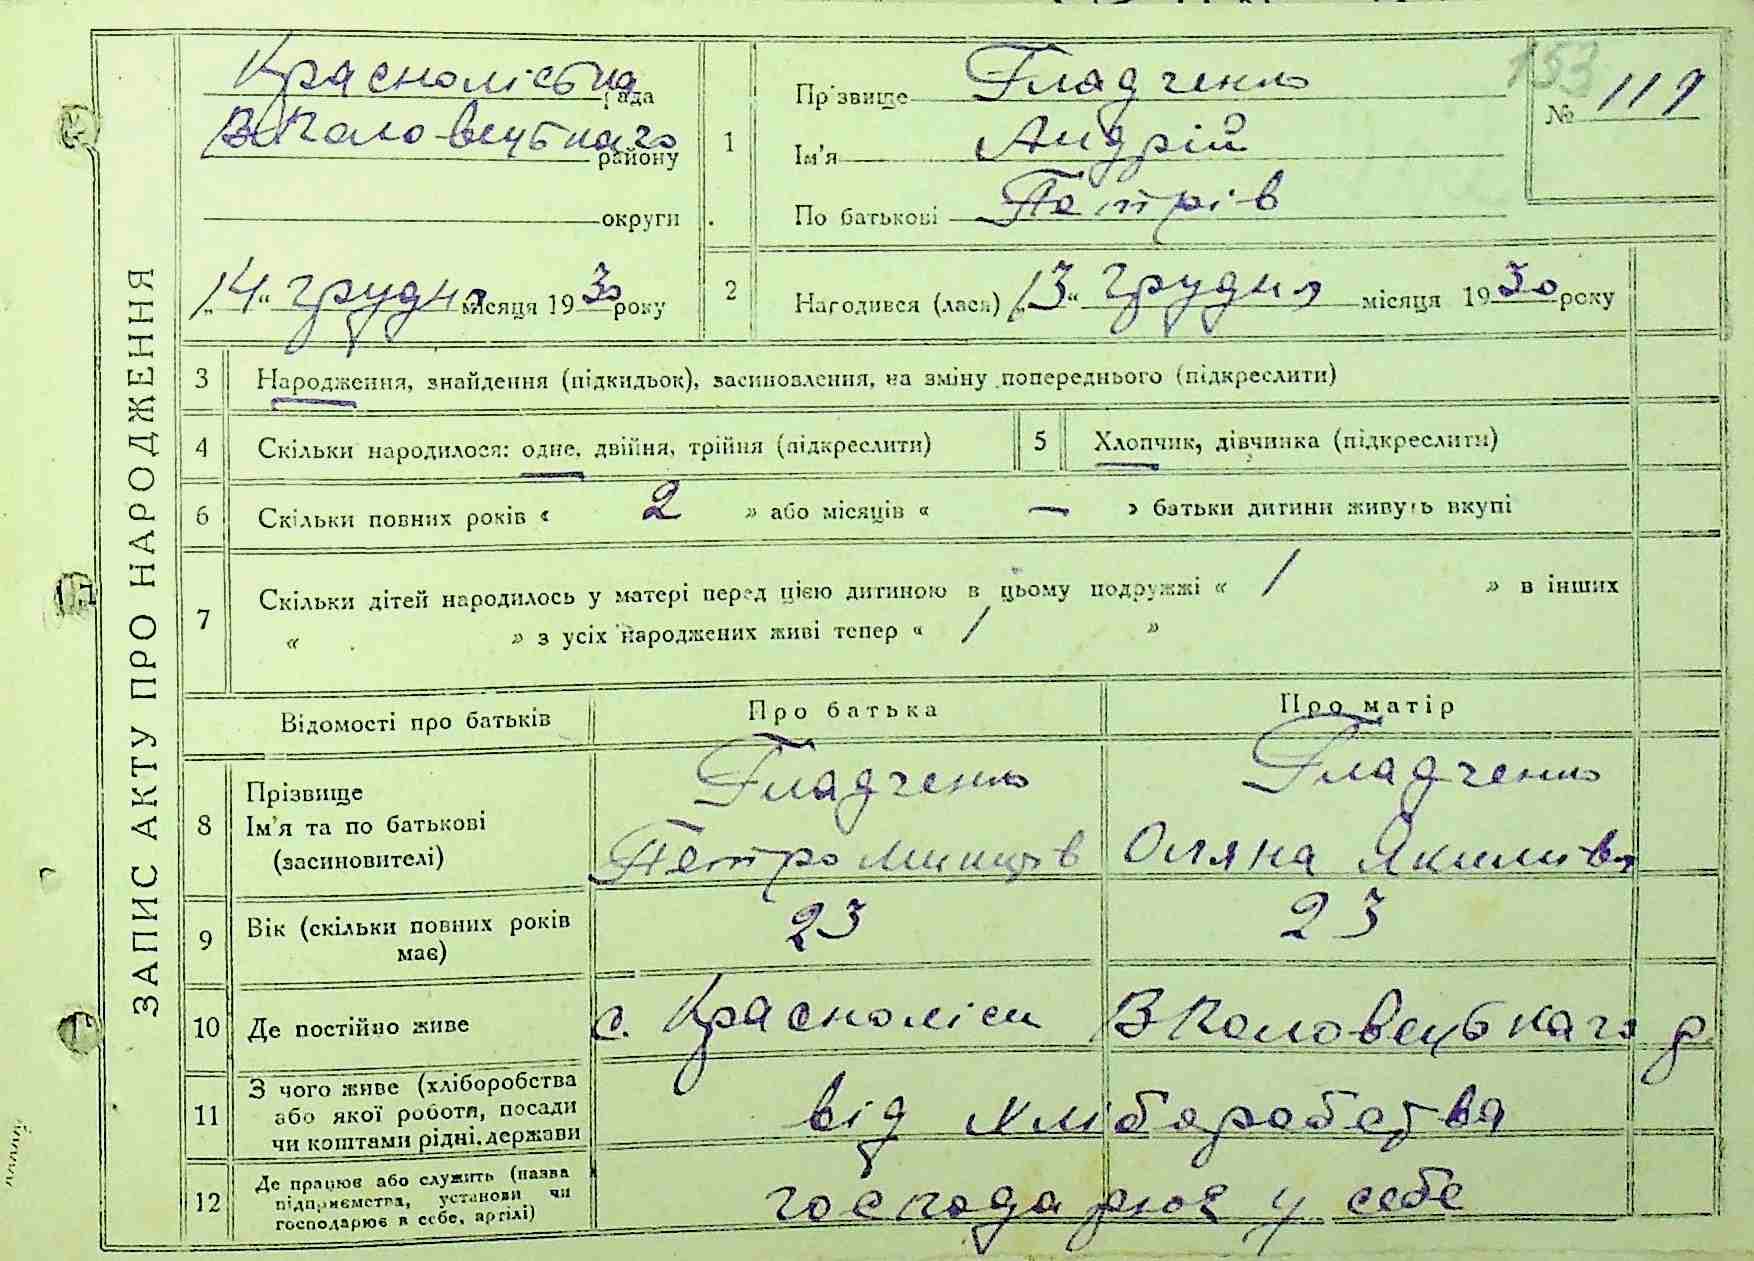 ЗАПИС АКТУ ПРО НАРОДЖЕННЯ
Краснолієтна рада
ВКаловецькаго району
округи
„14“ грудня місяця 1930 року
1
Прізвище Гладченко
Ім'я Андрій
По батькові Петрів
153
№ 119
2
Народився (лася) „13“ грудня місяця 1930 року
3 Народження, знайдення (підкидьок), засиновлення, на зміну попереднього (підкреслити)
4 Скільки народилося: одне, двійня, трійня (підкреслити)
5 Хлопчик, дівчинка (підкреслити)
6 Скільки повних років « 2 » або місяців « — » батьки дитини живуть вкупі
7 Скільки дітей народилось у матері перед цією дитиною в цьому подружжі « 1 » в інших
« » з усіх народжених живі тепер « 1 »
Відомості про батьків
Про батька
Про матір
8 Прізвище
Ім'я та по батькові
(засиновителі)
Гладченко
Петро
Гладченко
Оляна Якимівна
9 Вік (скільки повних років
має)
23
23
10 Де постійно живе
с. Красноліси ВКаловецькаго р
11 З чого живе (хліборобства
або якої роботи, посади
чи коштами рідні, держави
від хліборобства
12 Де працює або служить (назва
підприємства, установи чи
господарює в себе, артілі)
господарює у себе